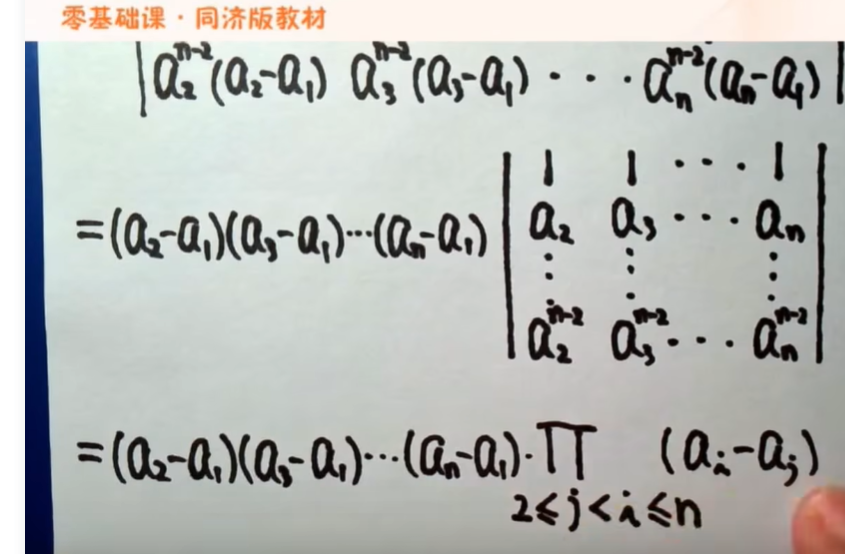 零基础课·同济版教材
| a₂ⁿ⁻²(a₂-a₁) a₃ⁿ⁻²(a₃-a₁) ··· aₙⁿ⁻²(aₙ-a₁) |
=(a₂-a₁)(a₃-a₁)···(aₙ-a₁) | 1 1 ··· 1 |
| a₂ a₃ ··· aₙ |
| ⋮ ⋮ ⋮ |
| a₂ⁿ⁻² a₃ⁿ⁻² ··· aₙⁿ⁻² |
=(a₂-a₁)(a₃-a₁)···(aₙ-a₁)·∏ (aᵢ-aⱼ)
2≤j<i≤n